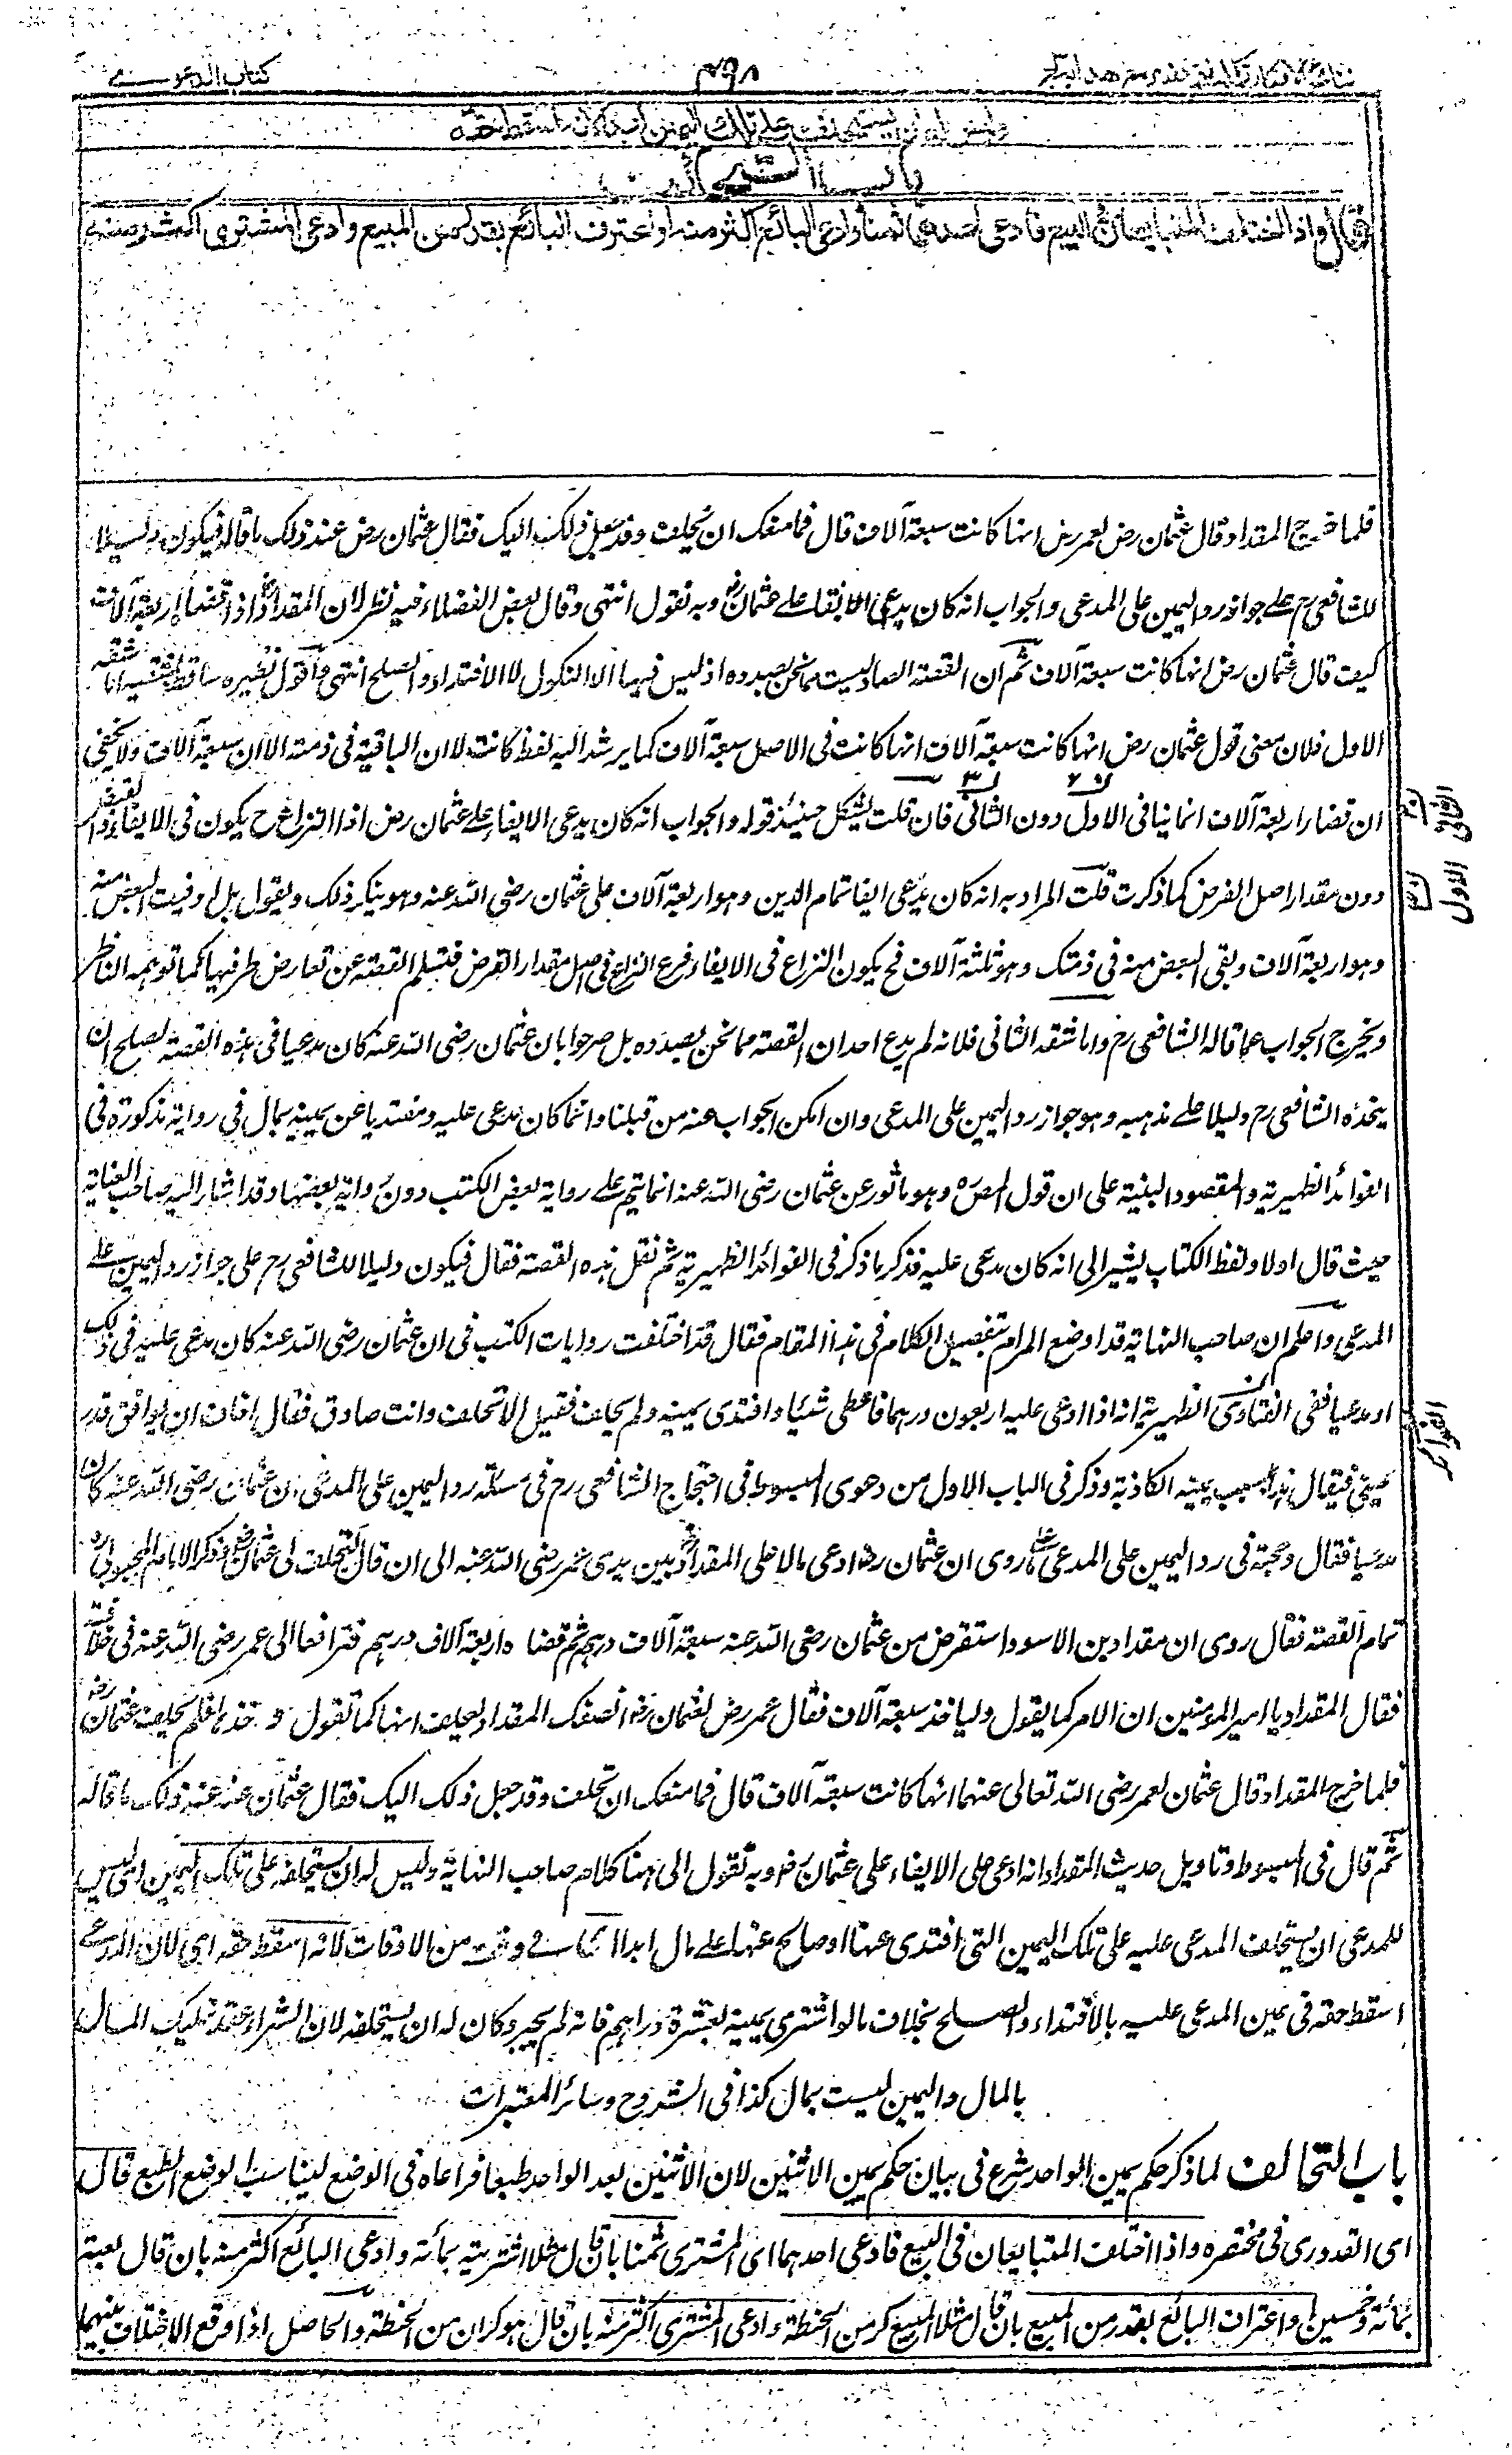 كتاب الدعوى
٤٩٨
نتائج الافكار تكملة فتح القدير مع هدايه
وليس له ان يستحلفه على تلك اليمين ابدا لانه اسقط حقه
باب التحالف
قال واذا اختلف المتبايعان فى البيع فادعى احدهما ثمنا وادعى البائع اكثر منه او اعترف البائع بقدر من المبيع وادعى المشترى اكثر منه
فلما خرج المقداد قال عثمان رض لعمر رض انها كانت سبعة آلاف قال فما منعك ان تحلف وقد جعل ذلك اليك فقال عثمان رض عند ذلك ما قاله فيكون دليلا
للشافعى رح على جواز رد اليمين على المدعى والجواب انه كان يدعى الايفاء على عثمان رض وبه نقول انتهى وقال بعض الفضلاء فيه نظر لان المقداد رض اذا قضاه اربعة آلاف
كيف قال عثمان رض انها كانت سبعة آلاف ثم ان القضية ليست مما نحن بصدده اذ ليس فيها الا النكول لا الافتداء والصلح انتهى واقول نظيره ساقط بشقيه اما شقه
الاول فلان معنى قول عثمان رض انها كانت سبعة آلاف انها كانت فى الاصل سبعة آلاف كما يرشد اليه لفظ كانت لا ان الباقية فى ذمته الآن سبعة آلاف ولا يخفى
ان قضاء اربعة آلاف انما ينافى الاول دون الثانى فان قلت ليشكل حينئذ قوله والجواب انه كان يدعى الايفاء على عثمان رض اذ النزاع ح يكون فى الايفاء
دون مقدار اصل القرض كما ذكرت قلت المراد به انه كان يدعى ايفاء تمام الدين وهو اربعة آلاف على عثمان رضى الله عنه وهو ينكر ذلك ويقول بل اوفيت البعض منه
وهو اربعة آلاف وبقى البعض منه فى ذمتك وهو ثلثة آلاف فح يكون النزاع فى الايفاء فرع النزاع فى اصل مقدار القرض فتسلم القصة عن تعارض طرفيها كما توهمه الناظر
ويخرج الجواب عما قاله الشافعى رح واما شقه الثانى فلانه لم يدع احد ان القصة مما نحن بصدده بل صرحوا بان عثمان رضى الله عنه كان مدعيا فى هذه القصة لصلح ان
يتخذه الشافعى رح دليلا على مذهبه وهو جواز رد اليمين على المدعى وان امكن الجواب عنه من قبلنا وانما كان مدعى عليه ومفتديا عن يمينه بمال فى رواية مذكورة فى
الفوائد الظهيرية والمقصود التنبيه على ان قول المصره وهو ماثور عن عثمان رضى الله عنه انما يتم على رواية بعض الكتب دون رواية بعضها وقد اشار اليه صاحب العناية
حيث قال اولا ولفظ الكتاب يشير الى انه كان مدعى عليه فذكر ما ذكر فى الفوائد الظهيرية ثم نقل هذه القصة فقال فيكون دليلا للشافعى رح على جواز رد اليمين على
المدعى واعلم ان صاحب النهاية قد اوضع المرام بتفصيل الكلام فى هذا المقام فقال قد اختلفت روايات الكتب فى ان عثمان رضى الله عنه كان مدعى عليه فى ذلك
او مدعيا ففى الفتاوى الظهيرية انه اذا ادعى عليه اربعون درهما فاعطى شيئا وافتدى يمينه ولم يحلف فقيل الا تحلف وانت صادق فقال اخاف ان يوافق قدر
يمينى فيقال هذا بسبب يمينه الكاذبة وذكر فى الباب الاول من دعوى المبسوط فى احتجاج الشافعى رح فى مسئلة رد اليمين على المدعى ان عثمان رضى الله عنه كان
مدعيا فقال وحجته فى رد اليمين على المدعى ما روى ان عثمان رض ادعى مالا على المقداد رض بين يدى عمر رضى الله عنه الى ان قال لتحلف لى عثمان رض وذكر الامام المحبوبى ره
تمام القصة فقال روى ان مقداد بن الاسود استقرض من عثمان رضى الله عنه سبعة آلاف درهم ثم قضاه اربعة آلاف درهم فترافعا الى عمر رضى الله عنه فى خلافته
فقال المقداد يا امير المؤمنين ان الامر كما يقول ولياخذ سبعة آلاف فقال عمر رض لعثمان رض انصفك المقداد لتحلف انها كما تقول وخذها فلم يحلف عثمان رض
فلما خرج المقداد قال عثمان لعمر رضى الله تعالى عنهما انها كانت سبعة آلاف قال فما منعك ان تحلف وقد جعل ذلك اليك فقال عثمان عنه عند ذلك ما قاله
ثم قال فى المبسوط وتاويل حديث المقداد انه ادعى على الايفاء على عثمان رض وبه نقول الى هنا كلام صاحب النهاية وليس له ان يستحلفه على تلك اليمين اى ليس
للمدعى ان يستحلف المدعى عليه على تلك اليمين التى افتدى عنها او صالح عنها على مال ابدا اى فى وقت من الاوقات لانه اسقط حقه اى لان المدعى
اسقط حقه فى يمين المدعى عليه بالافتداء والصلح بخلاف ما لو اشترى يمينه بعشرة دراهم فانه لم يجبر وكان له ان يستحلفه لان الشراء عقد تمليك المال
بالمال واليمين ليست بمال كذا فى الشروح وسائر المعتبرات
باب التحالف لما ذكر حكم يمين الواحد شرع فى بيان حكم يمين الاثنين لان الاثنين بعد الواحد طبعا فراعاه فى الوضع ليناسب الوضع الطبع قال
اى القدورى فى مختصره واذا اختلف المتبايعان فى البيع فادعى احدهما اى المشترى ثمنا بان قال مثلا اشتريته بمائة وادعى البائع اكثر منه بان قال بعته
بمائة وخمسين او اعترف البائع بقدر من المبيع بان قال مثلا المبيع كر من الحنطة وادعى المشترى اكثر منه بان قال هو كران من الحنطة والحاصل اذا وقع الاختلاف بينهما